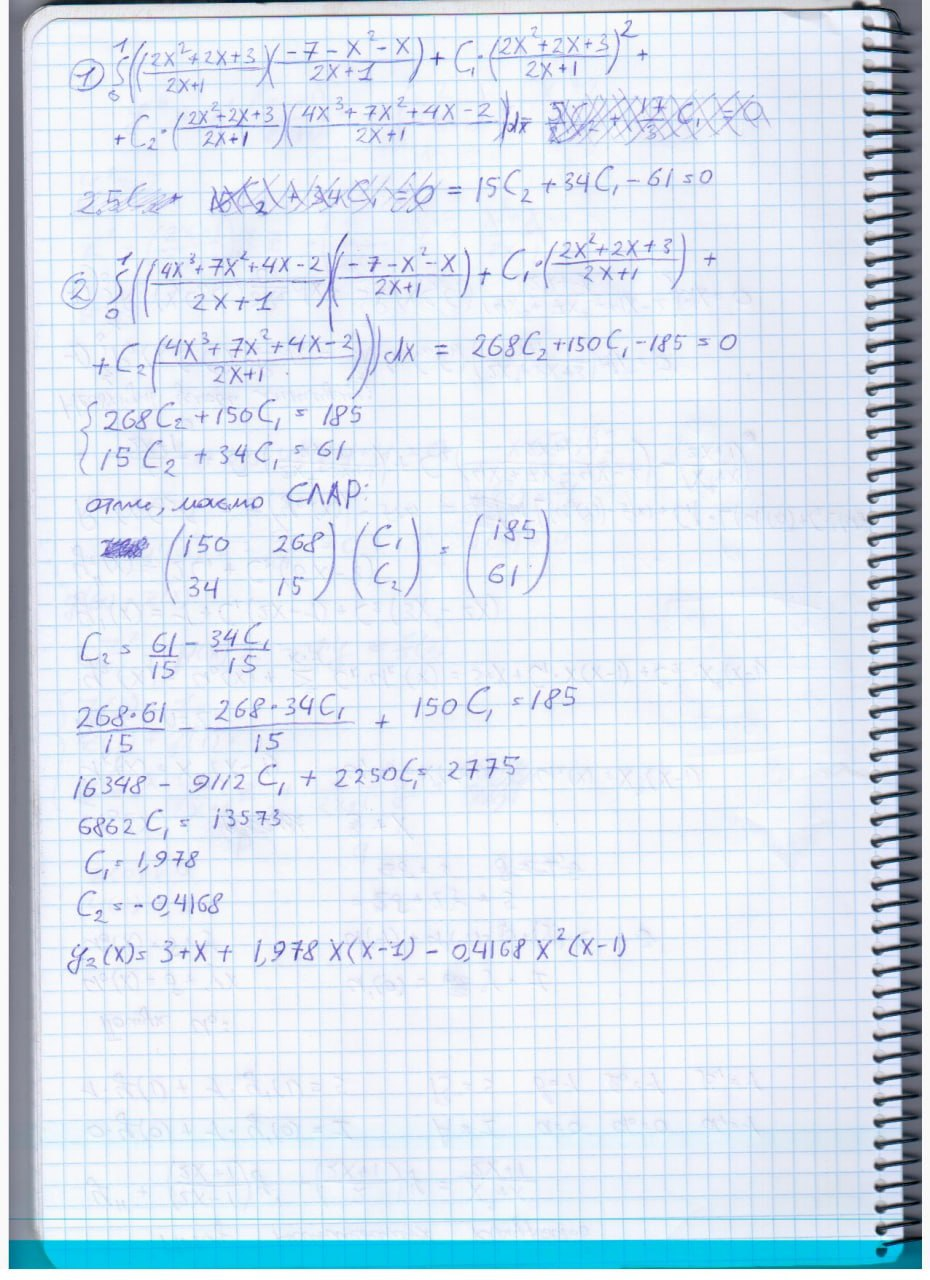 ① ∫₀¹((2x²+2x+3)/(2x+1))((-7-x²-x)/(2x+1)) + C₁·((2x²+2x+3)/(2x+1))² +
+ C₂·((2x²+2x+3)/(2x+1))((4x³+7x²+4x-2)/(2x+1))dx =
= 15C₂ + 34C₁ - 61 = 0
② ∫₀¹((4x³+7x²+4x-2)/(2x+1))((-7-x²-x)/(2x+1)) + C₁·((2x²+2x+3)/(2x+1)) +
+ C₂((4x³+7x²+4x-2)/(2x+1)))dx = 268C₂+150C₁-185=0
{268C₂+150C₁ = 185
{15C₂ + 34C₁ = 61
отже, маємо СЛАР:
(150 268) (C₁) = (185)
(34 15) (C₂) (61)
C₂ = 61/15 - 34C₁/15
268·61/15 - 268·34C₁/15 + 150C₁ = 185
16348 - 9112C₁ + 2250C₁ = 2775
6862C₁ = 13573
C₁ = 1,978
C₂ = -0,4168
y₂(x) = 3+x + 1,978x(x-1) - 0,4168x²(x-1)